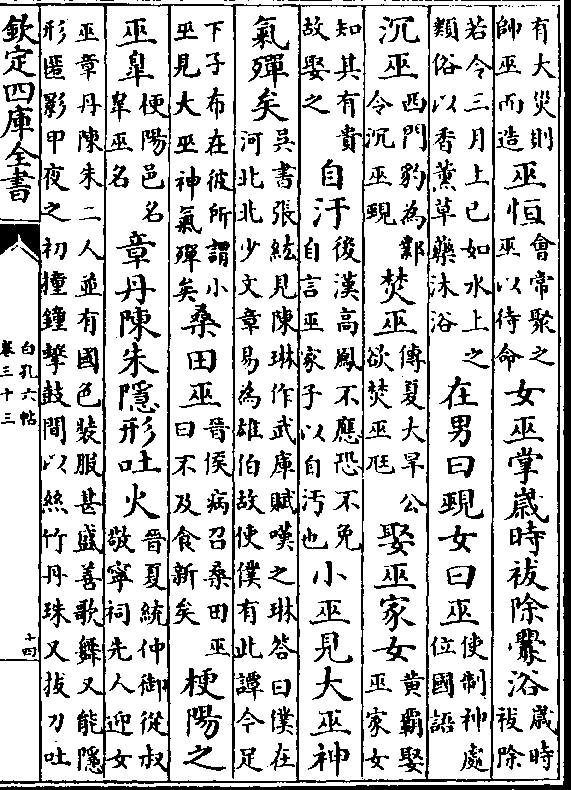 有大災則帥巫而造巫恒會常聚之巫以待命女巫掌歲時祓除釁浴歲時祓除
若今三月上已如水上之類俗以香薰草藥沐浴在男曰覡女曰巫使制神處位國語
沉巫西門豹為鄴令沉巫覡焚巫傳夏大旱公欲焚巫尫娶巫家女黃霸娶巫家女
知其有貴故娶之自汙後漢高鳳不應恐不免自言巫家子以自污也小巫見大巫神
氣殫矣吳書張紘見陳琳作武庫賦嘆之琳答曰僕在河北北少文章易為雄伯故使僕有此譚今足
下子布在彼所謂小巫見大巫神氣殫矣桑田巫晉侯病召桑田巫曰不及食新矣梗陽之
巫臯梗陽邑名臯巫名章丹陳朱隱形吐火晉夏統仲御從叔敬寧祠先人迎女
巫章丹陳朱二人並有國色裝服甚盛善歌舞又能隱形匿影甲夜之初撞鐘擊鼓間以絲竹丹珠又拔刀吐
欽定四庫全書
白孔六帖
卷三十三
十四